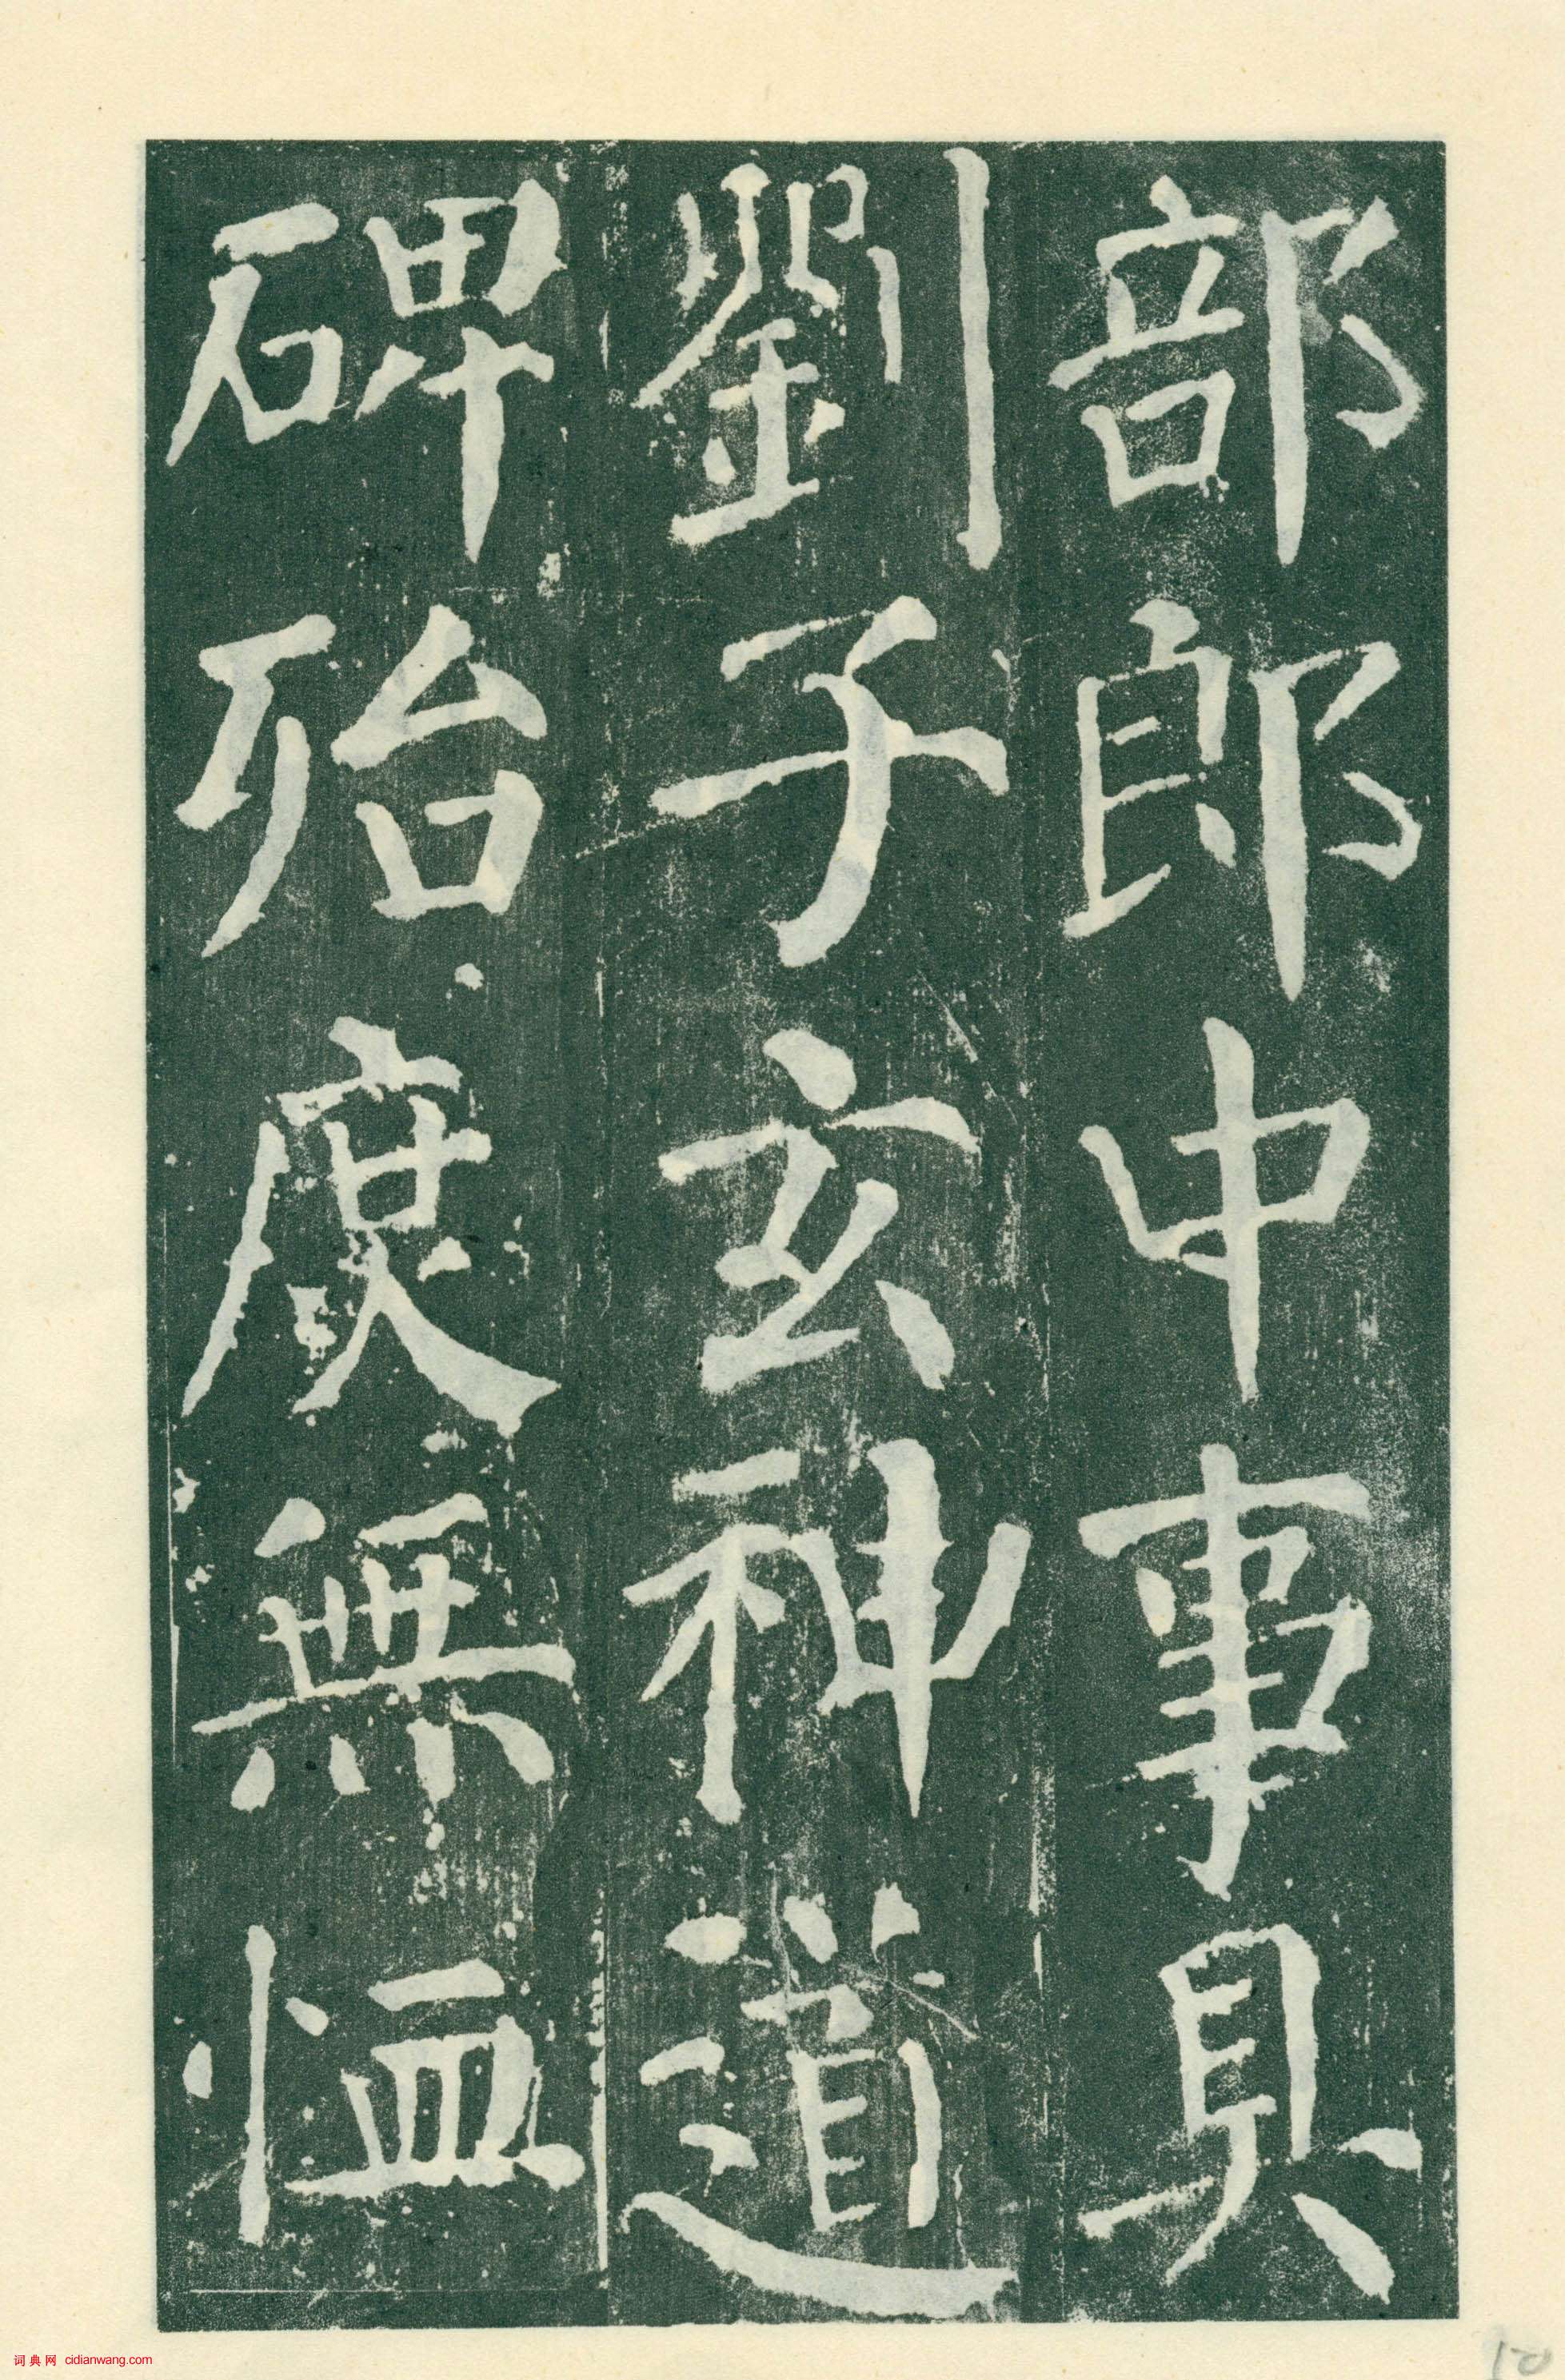 部郎中事具
劉子玄神道
碑殆庶無恤
词典网 cidianwang.com
10